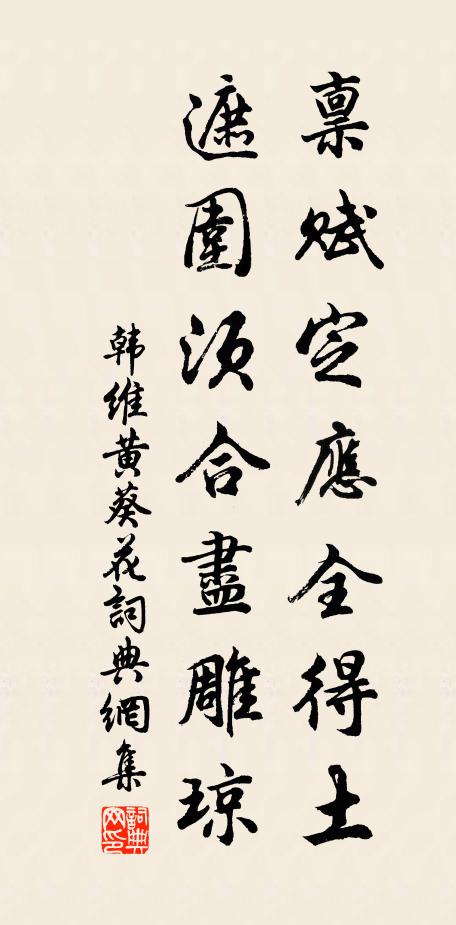 禀賦定應全得土
遮圍須合盡雕琼
韩維黄葵花詞典網集
詞典网印